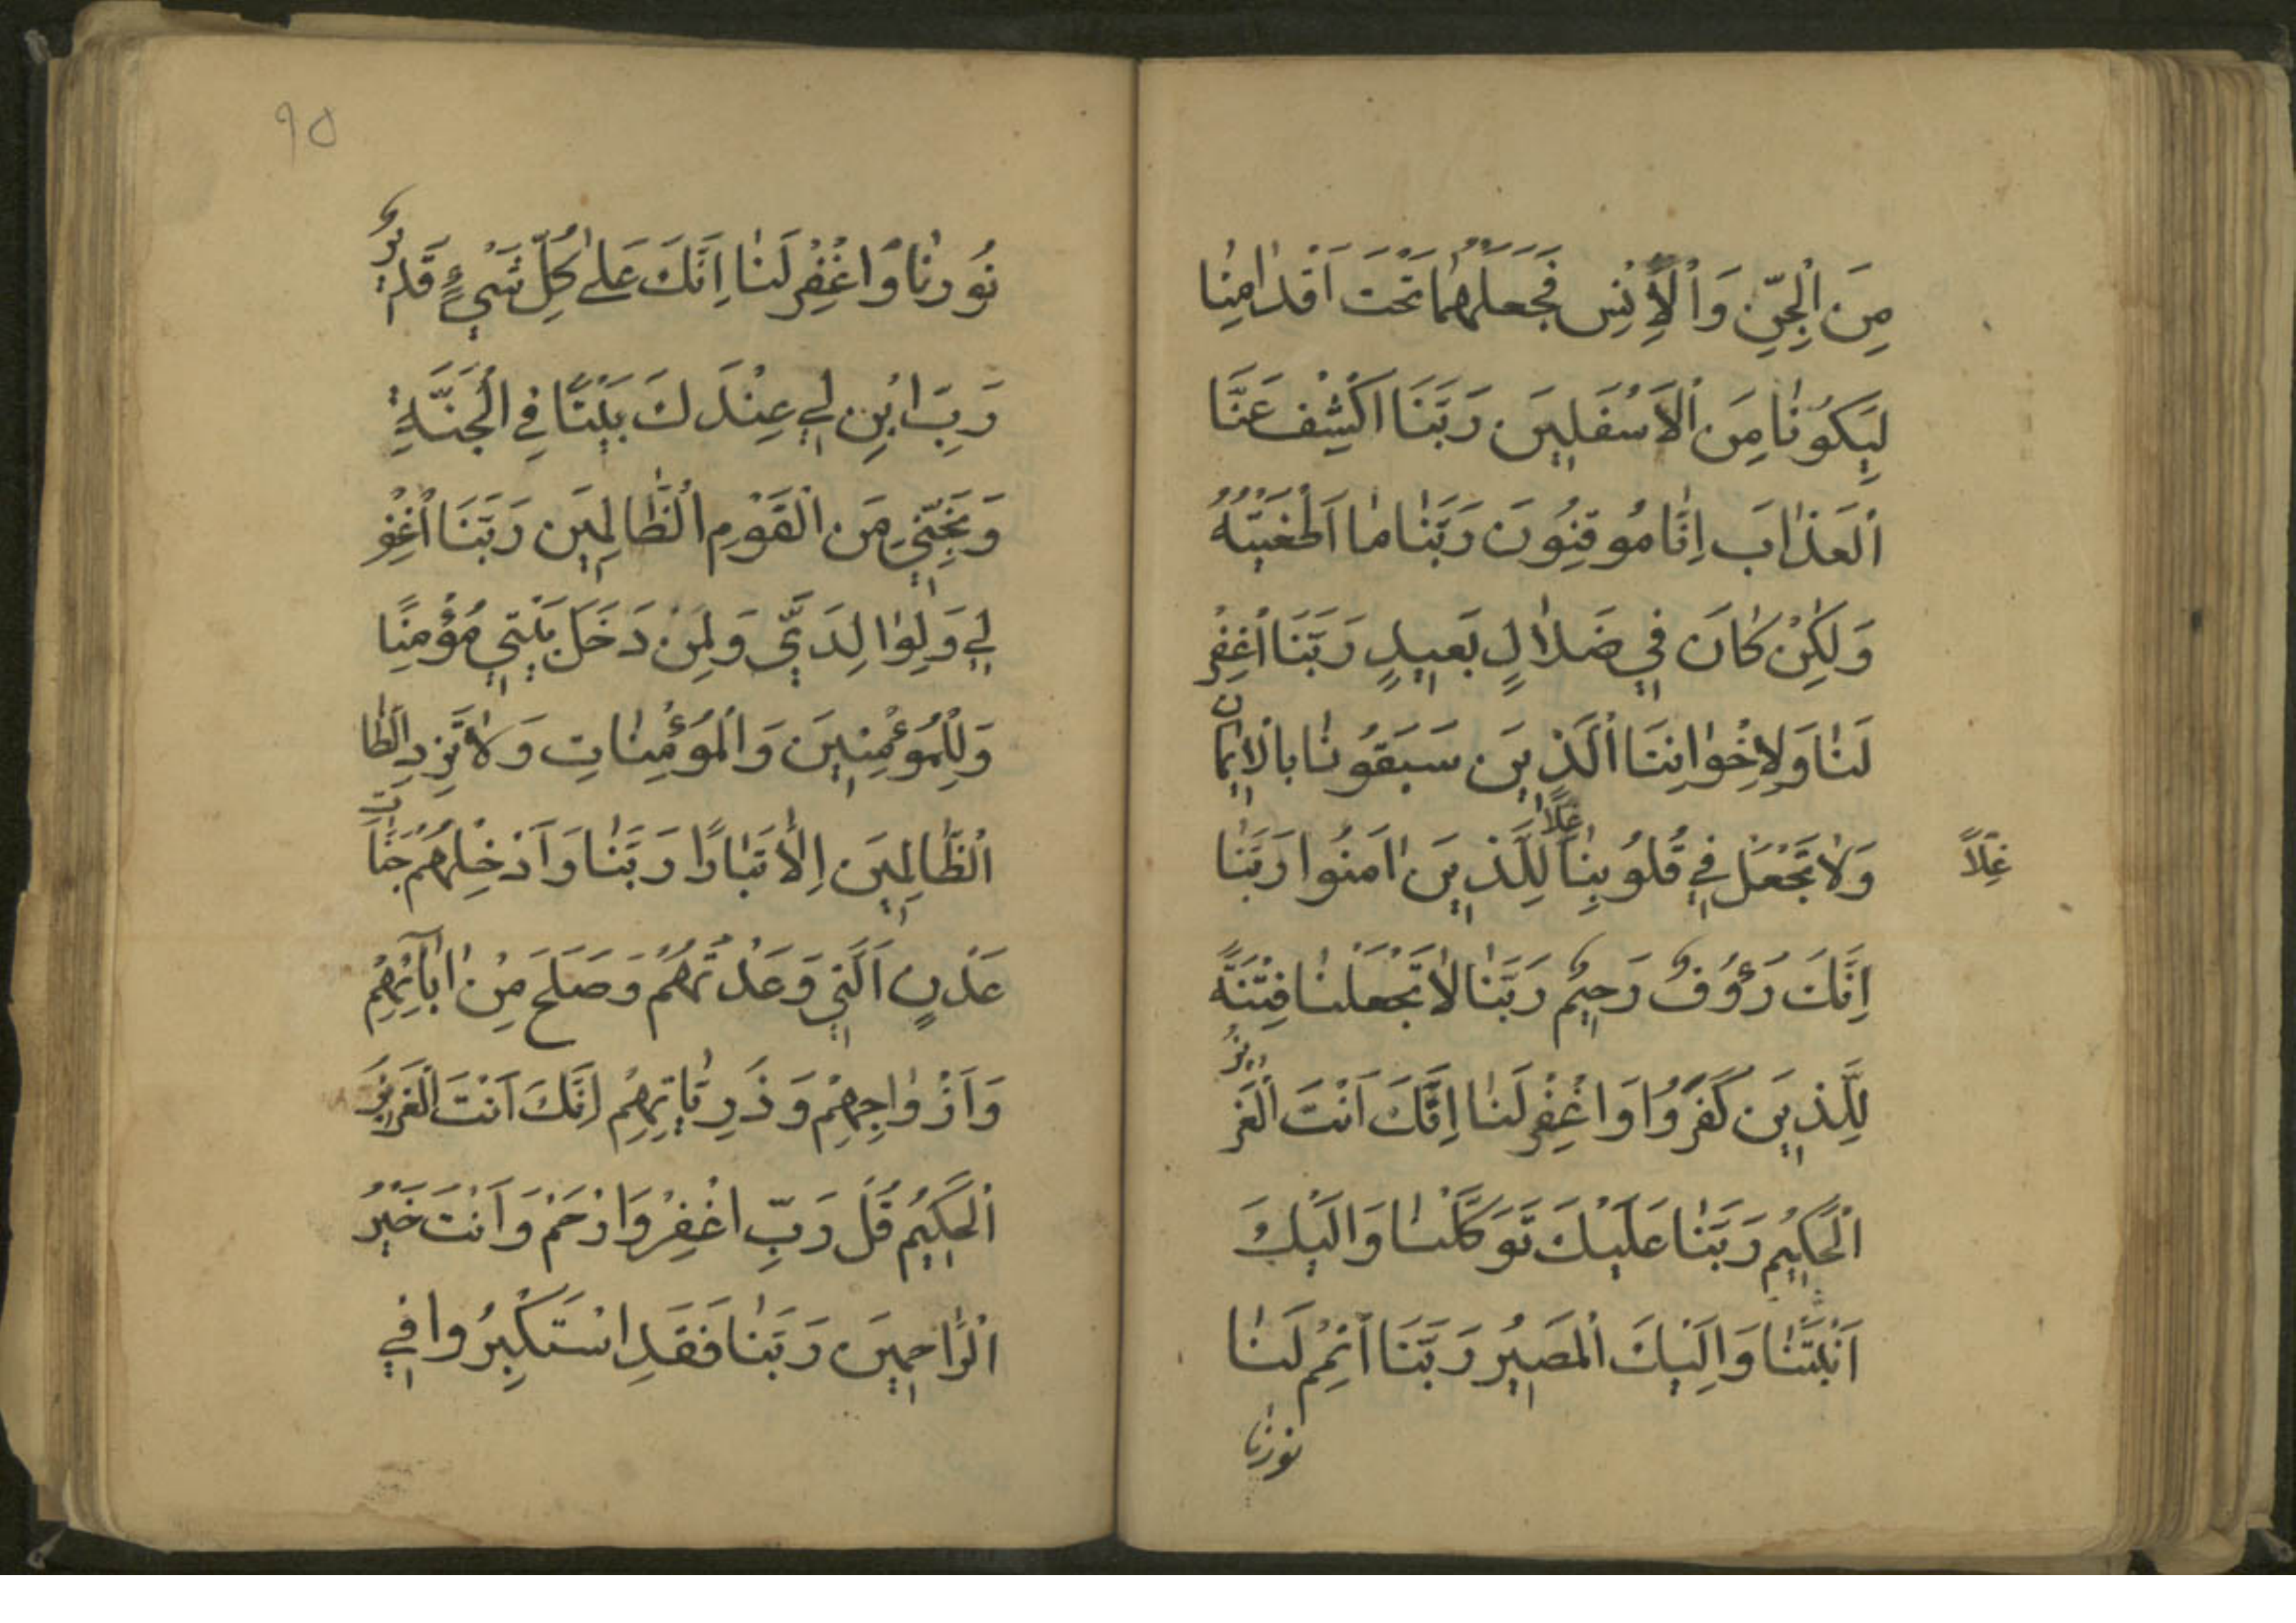 مِنَ الْجِنِّ وَالْاِنْسِ فَجَعَلَهُمَا تَحْتَ اَقْدَامِنَا
لِيَكُونَا مِنَ الْاَسْفَلِينَ رَبَّنَا اكْشِفْ عَنَّا
الْعَذَابَ اِنَّا مُوقِنُونَ رَبَّنَا مَا اَطْغَيْتُهُ
وَلٰكِنْ كَانَ فِي ضَلَالٍ بَعِيدٍ رَبَّنَا اغْفِرْ
لَنَا وَلِاِخْوَانِنَا الَّذِينَ سَبَقُونَا بِالْاِيمَانِ
وَلَا تَجْعَلْ فِي قُلُوبِنَا غِلًّا لِلَّذِينَ اٰمَنُوا رَبَّنَا
غِلًّا
اِنَّكَ رَؤُفٌ رَحِيمٌ رَبَّنَا لَا تَجْعَلْنَا فِتْنَةً
لِلَّذِينَ كَفَرُوا وَاغْفِرْ لَنَا اِنَّكَ اَنْتَ الْعَزِيزُ
الْحَكِيمُ رَبَّنَا عَلَيْكَ تَوَكَّلْنَا وَاِلَيْكَ
اَنَبْنَا وَاِلَيْكَ الْمَصِيرُ رَبَّنَا اَتْمِمْ لَنَا
نورنا
٩٥
نُورَنَا وَاغْفِرْ لَنَا اِنَّكَ عَلٰى كُلِّ شَيْءٍ قَدِيرٌ
رَبِّ ابْنِ لِي عِنْدَكَ بَيْتًا فِي الْجَنَّةِ
وَنَجِّنِي مِنَ الْقَوْمِ الظَّالِمِينَ رَبَّنَا اغْفِرْ
لِي وَلِوَالِدَيَّ وَلِمَنْ دَخَلَ بَيْتِي مُؤْمِنًا
وَلِلْمُؤْمِنِينَ وَالْمُؤْمِنَاتِ وَلَا تَزِدِ الظَّا
الظَّالِمِينَ اِلَّا تَبَارًا رَبَّنَا وَاَدْخِلْهُمْ جَنَّاتِ
عَدْنٍ الَّتِي وَعَدْتَهُمْ وَصَلَحَ مِنْ اٰبَآئِهِمْ
وَاَزْوَاجِهِمْ وَذُرِّيَّاتِهِمْ اِنَّكَ اَنْتَ الْعَزِيزُ
الْحَكِيمُ قُلْ رَبِّ اغْفِرْ وَارْحَمْ وَاَنْتَ خَيْرُ
الرَّاحِمِينَ رَبَّنَا فَقَدِ اسْتَكْبِرُوا فِي